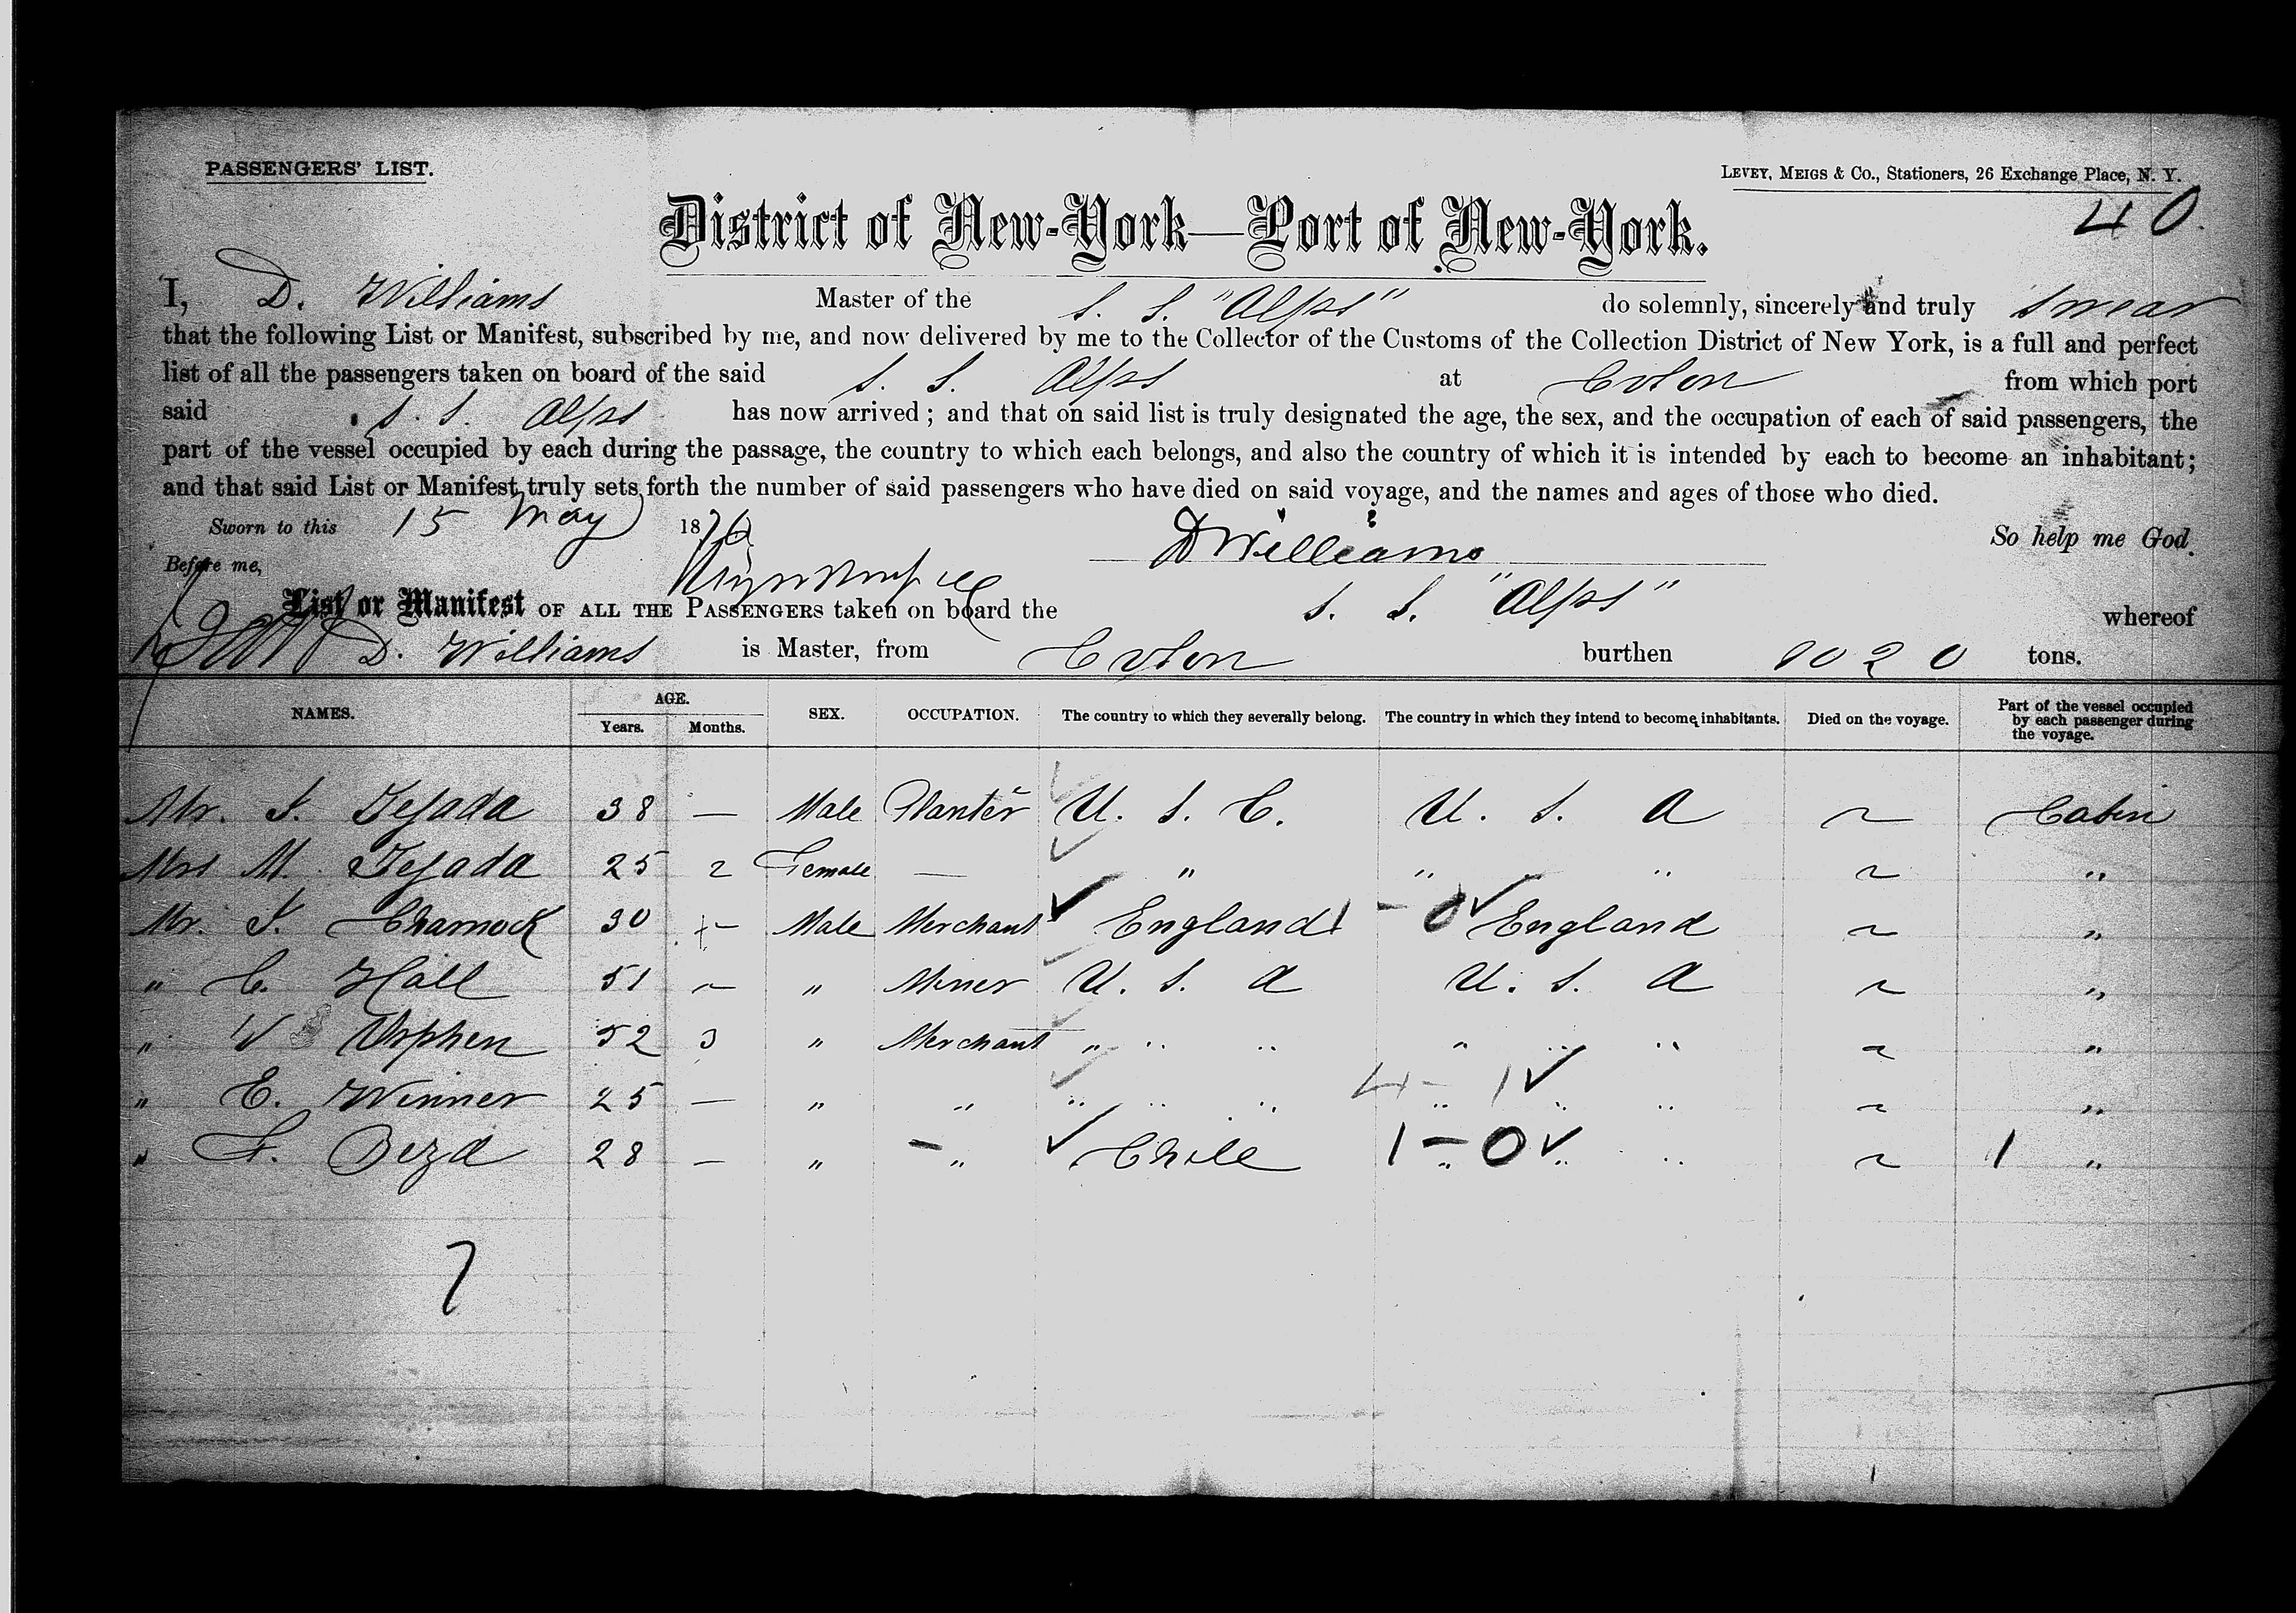 PASSENGERS' LIST.
LEVEY, MEIGS & Co., Stationers, 26 Exchange Place, N. Y.
40.
District of New-York—Port of New-York.
I, D. Williams Master of the S. S. "Alps" do solemnly, sincerely and truly swear
that the following List or Manifest, subscribed by me, and now delivered by me to the Collector of the Customs of the Collection District of New York, is a full and perfect
list of all the passengers taken on board of the said S. S. Alps at Colon from which port
said S. S. Alps has now arrived; and that on said list is truly designated the age, the sex, and the occupation of each of said passengers, the
part of the vessel occupied by each during the passage, the country to which each belongs, and also the country of which it is intended by each to become an inhabitant;
and that said List or Manifest truly sets forth the number of said passengers who have died on said voyage, and the names and ages of those who died.
Sworn to this 15 May 1876 D Williams So help me God.
Before me,
List or Manifest OF ALL THE PASSENGERS taken on board the S. S. "Alps" whereof
D. Williams is Master, from Colon burthen tons.
NAMES. AGE. Years. Months. SEX. OCCUPATION. The country to which they severally belong. The country in which they intend to become inhabitants. Died on the voyage. Part of the vessel occupied by each passenger during the voyage.
Mr. Tejada 38 — Male Planter U. S. C. U. S. A ~ Cabin
Mrs M. Tejada 25 2 Female — " " " " ~ "
Mr. Charnock 30 — Male Merchant England 1 - 0 England ~ "
" C. Hall 51 ~ " Miner U. S. A U. S. A ~ "
" W Orphen 52 3 " Merchant " " " " " " ~ "
" E. Winner 25 — " " " " " 4 - 1 " " " ~ "
" F. 28 — " - " Chile 1 - 0 " " " ~ 1 "
7